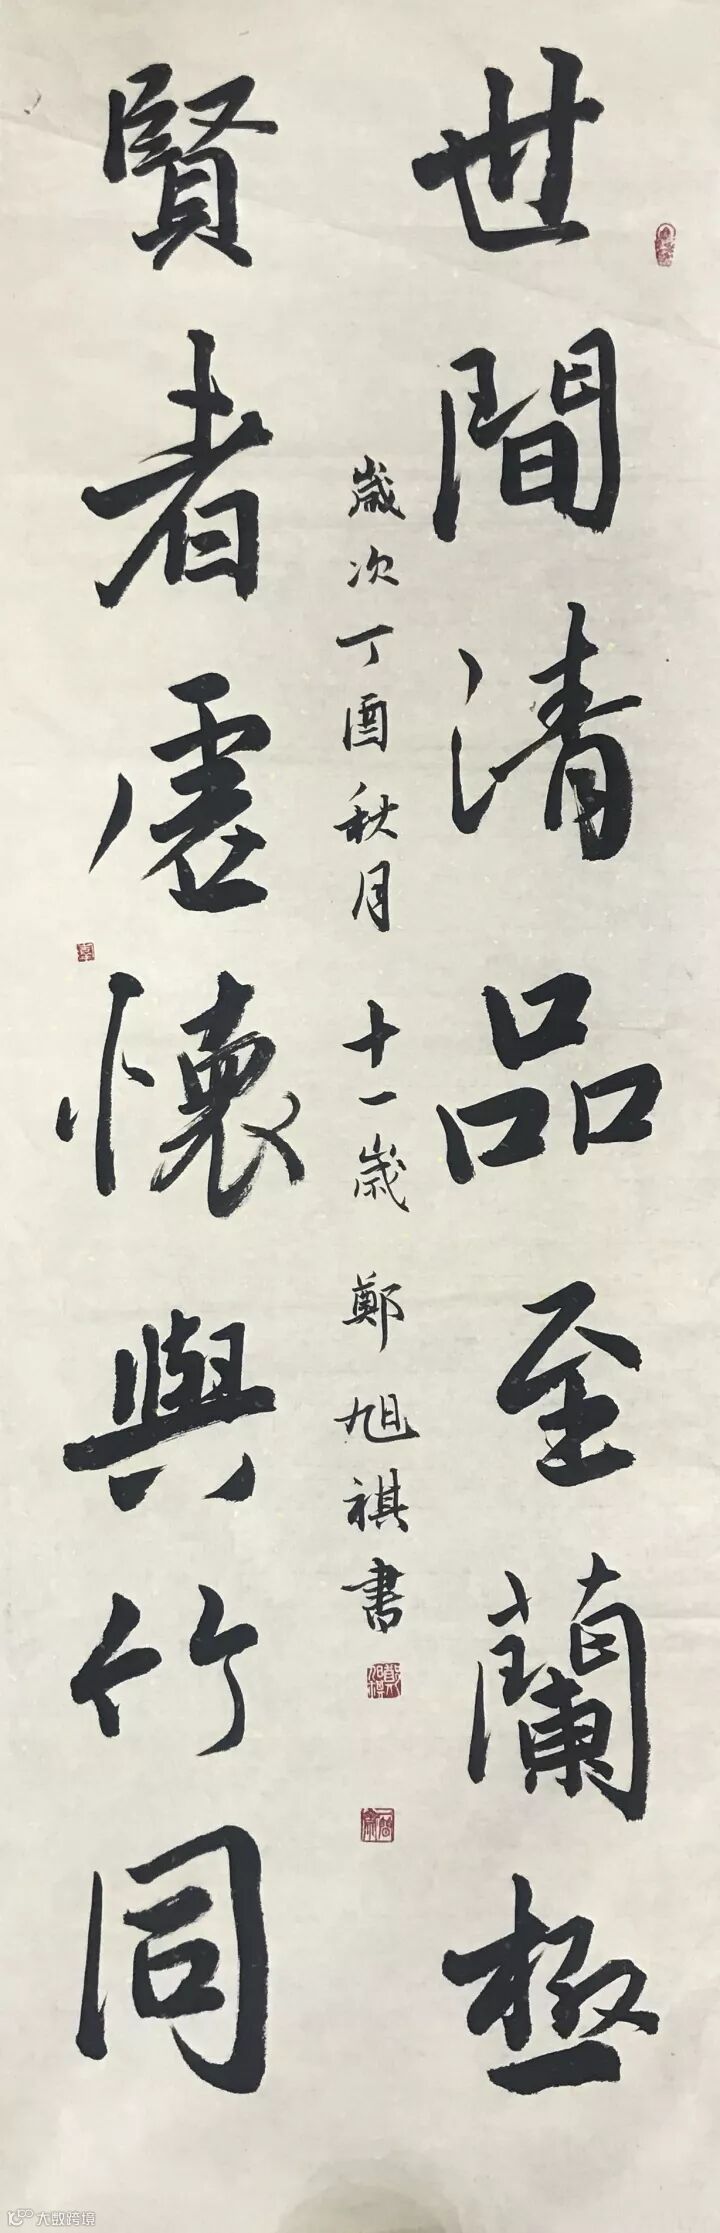 世間清品至蘭極
賢者虛懷與竹同
歲次丁酉秋月 十一歲 鄭旭祺書
大数跨境